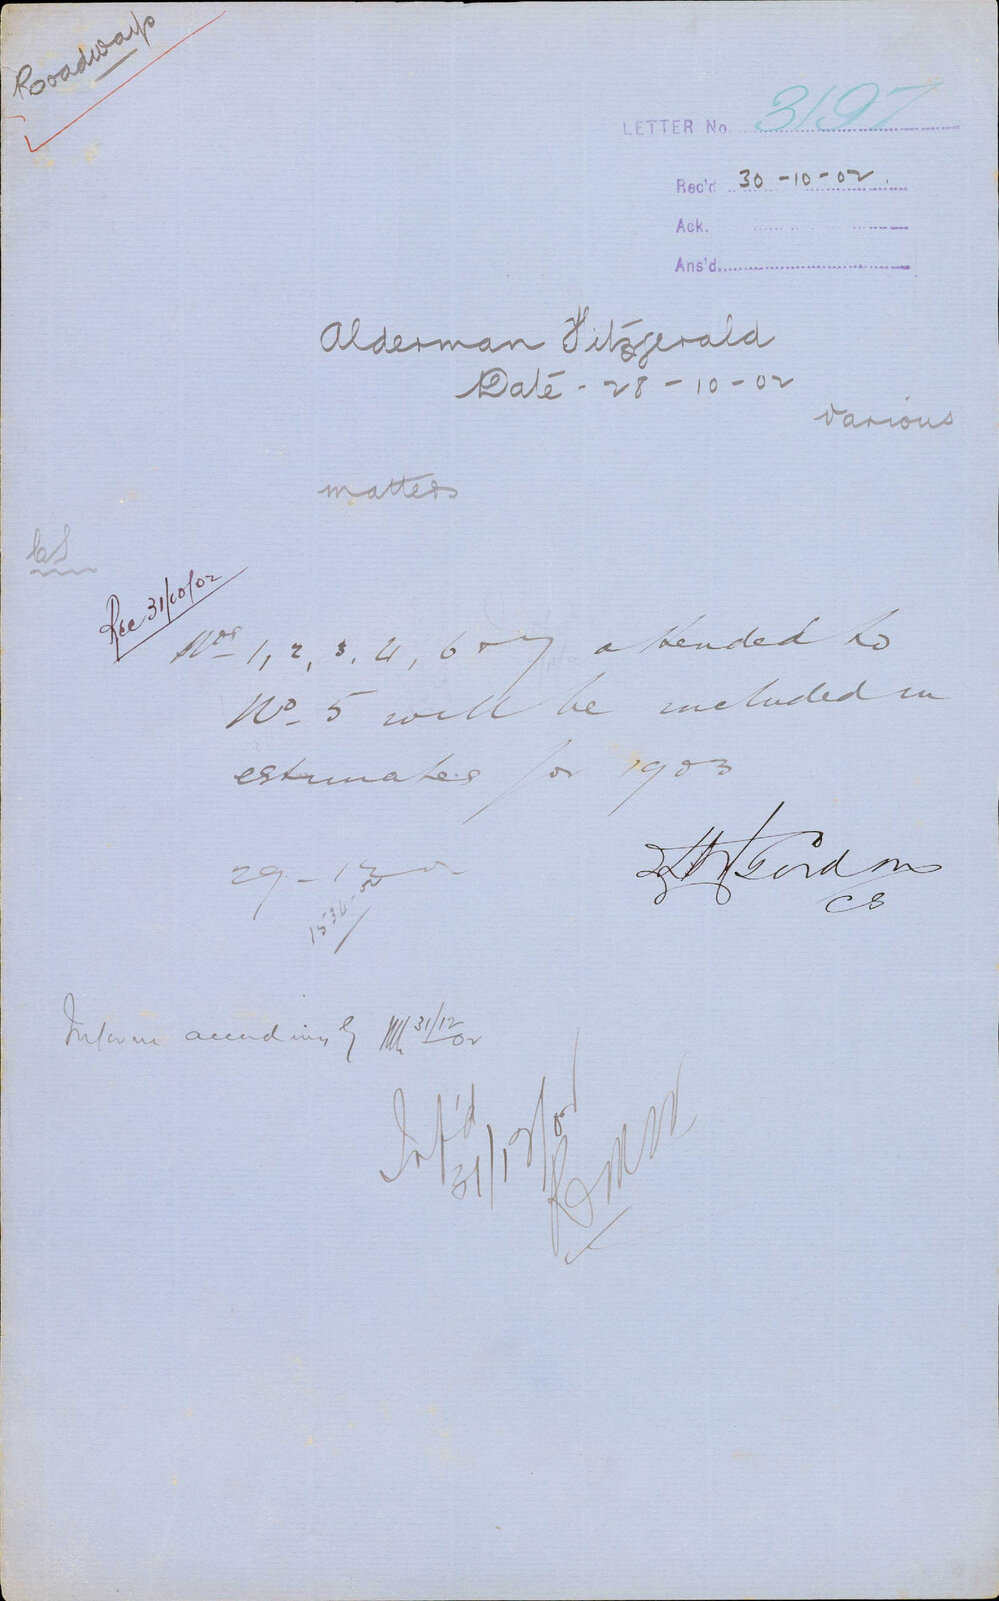 Roadways
LETTER No. 3197
Rec'd 30-10-02.
Ack.
Ans'd.
Alderman Fitzgerald
Date - 28-10-02
various
matters
CS
Rec 31/10/02
Nos 1, 2, 3, 4, 6 & 7 attended to
No 5 will be included in
estimates for 1903
29-12-02
Gordon
CS
1536-02
Inform accordingly 31/12/02
Inf'd
31/12/02